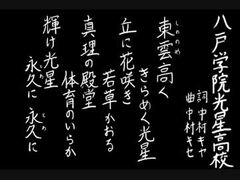 八戸学院光星高校
詞 中村キヤ
曲 中村キセ
しののめ
東雲高く
きらめく光星
丘に花咲き
若草かおる
真理の殿堂
体育のいらか
輝け光星
とわ とわ
永久に 永久に